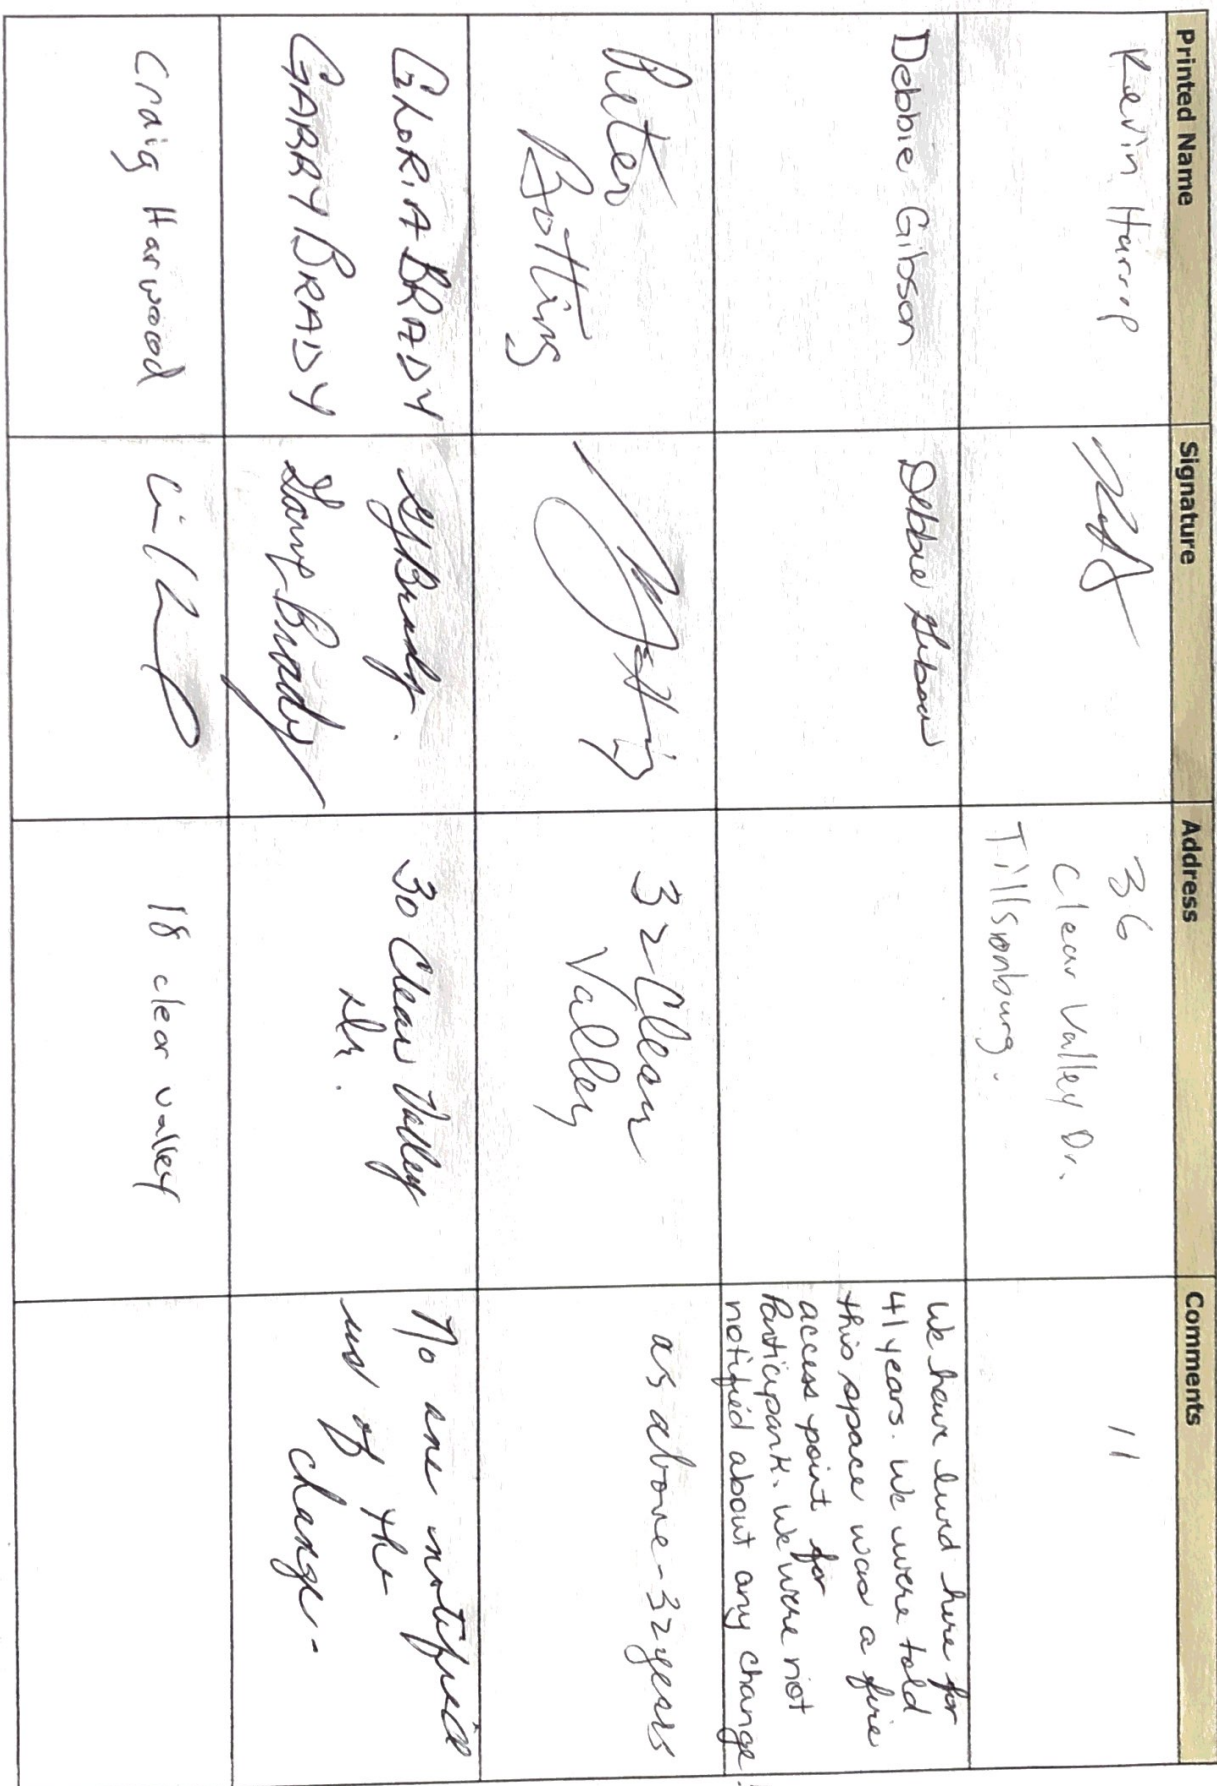 Printed Name Signature Address Comments
Kevin Harrop 36 11
Clear Valley Dr.
Tillsonburg.
Debbie Gibson Debbie Gibson We have lived here for
41 years. We were told
this space was a fire
access point for
Participark. We were not
notified about any change.
Peter
Botting
32 Clear
Valley
as above - 32 years
GLORIA BRADY GBrady. 30 Clear Valley
Dr.
No one notified
us of the
change.
GARRY BRADY Garry Brady
Craig Harwood 18 clear valley